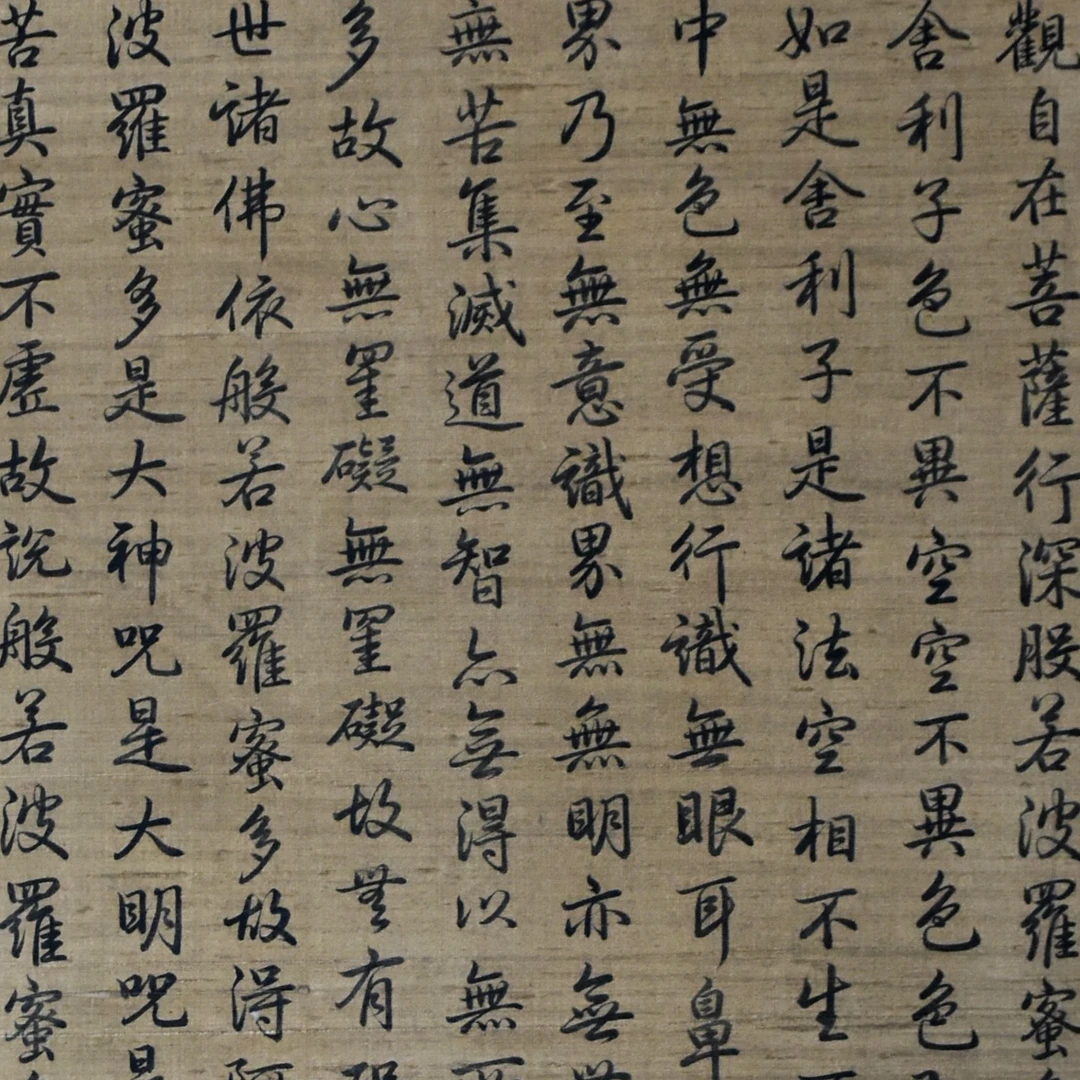 觀自在菩薩行深般若波羅蜜
舍利子色不異空空不異色色
如是舍利子是諸法空相不生
中無色無受想行識無眼耳鼻
界乃至無意識界無無明亦無
無苦集滅道無智亦無得以無
多故心無罣礙無罣礙故無有
世諸佛依般若波羅蜜多故得阿
波羅蜜多是大神咒是大明咒是
苦真實不虛故說般若波羅蜜